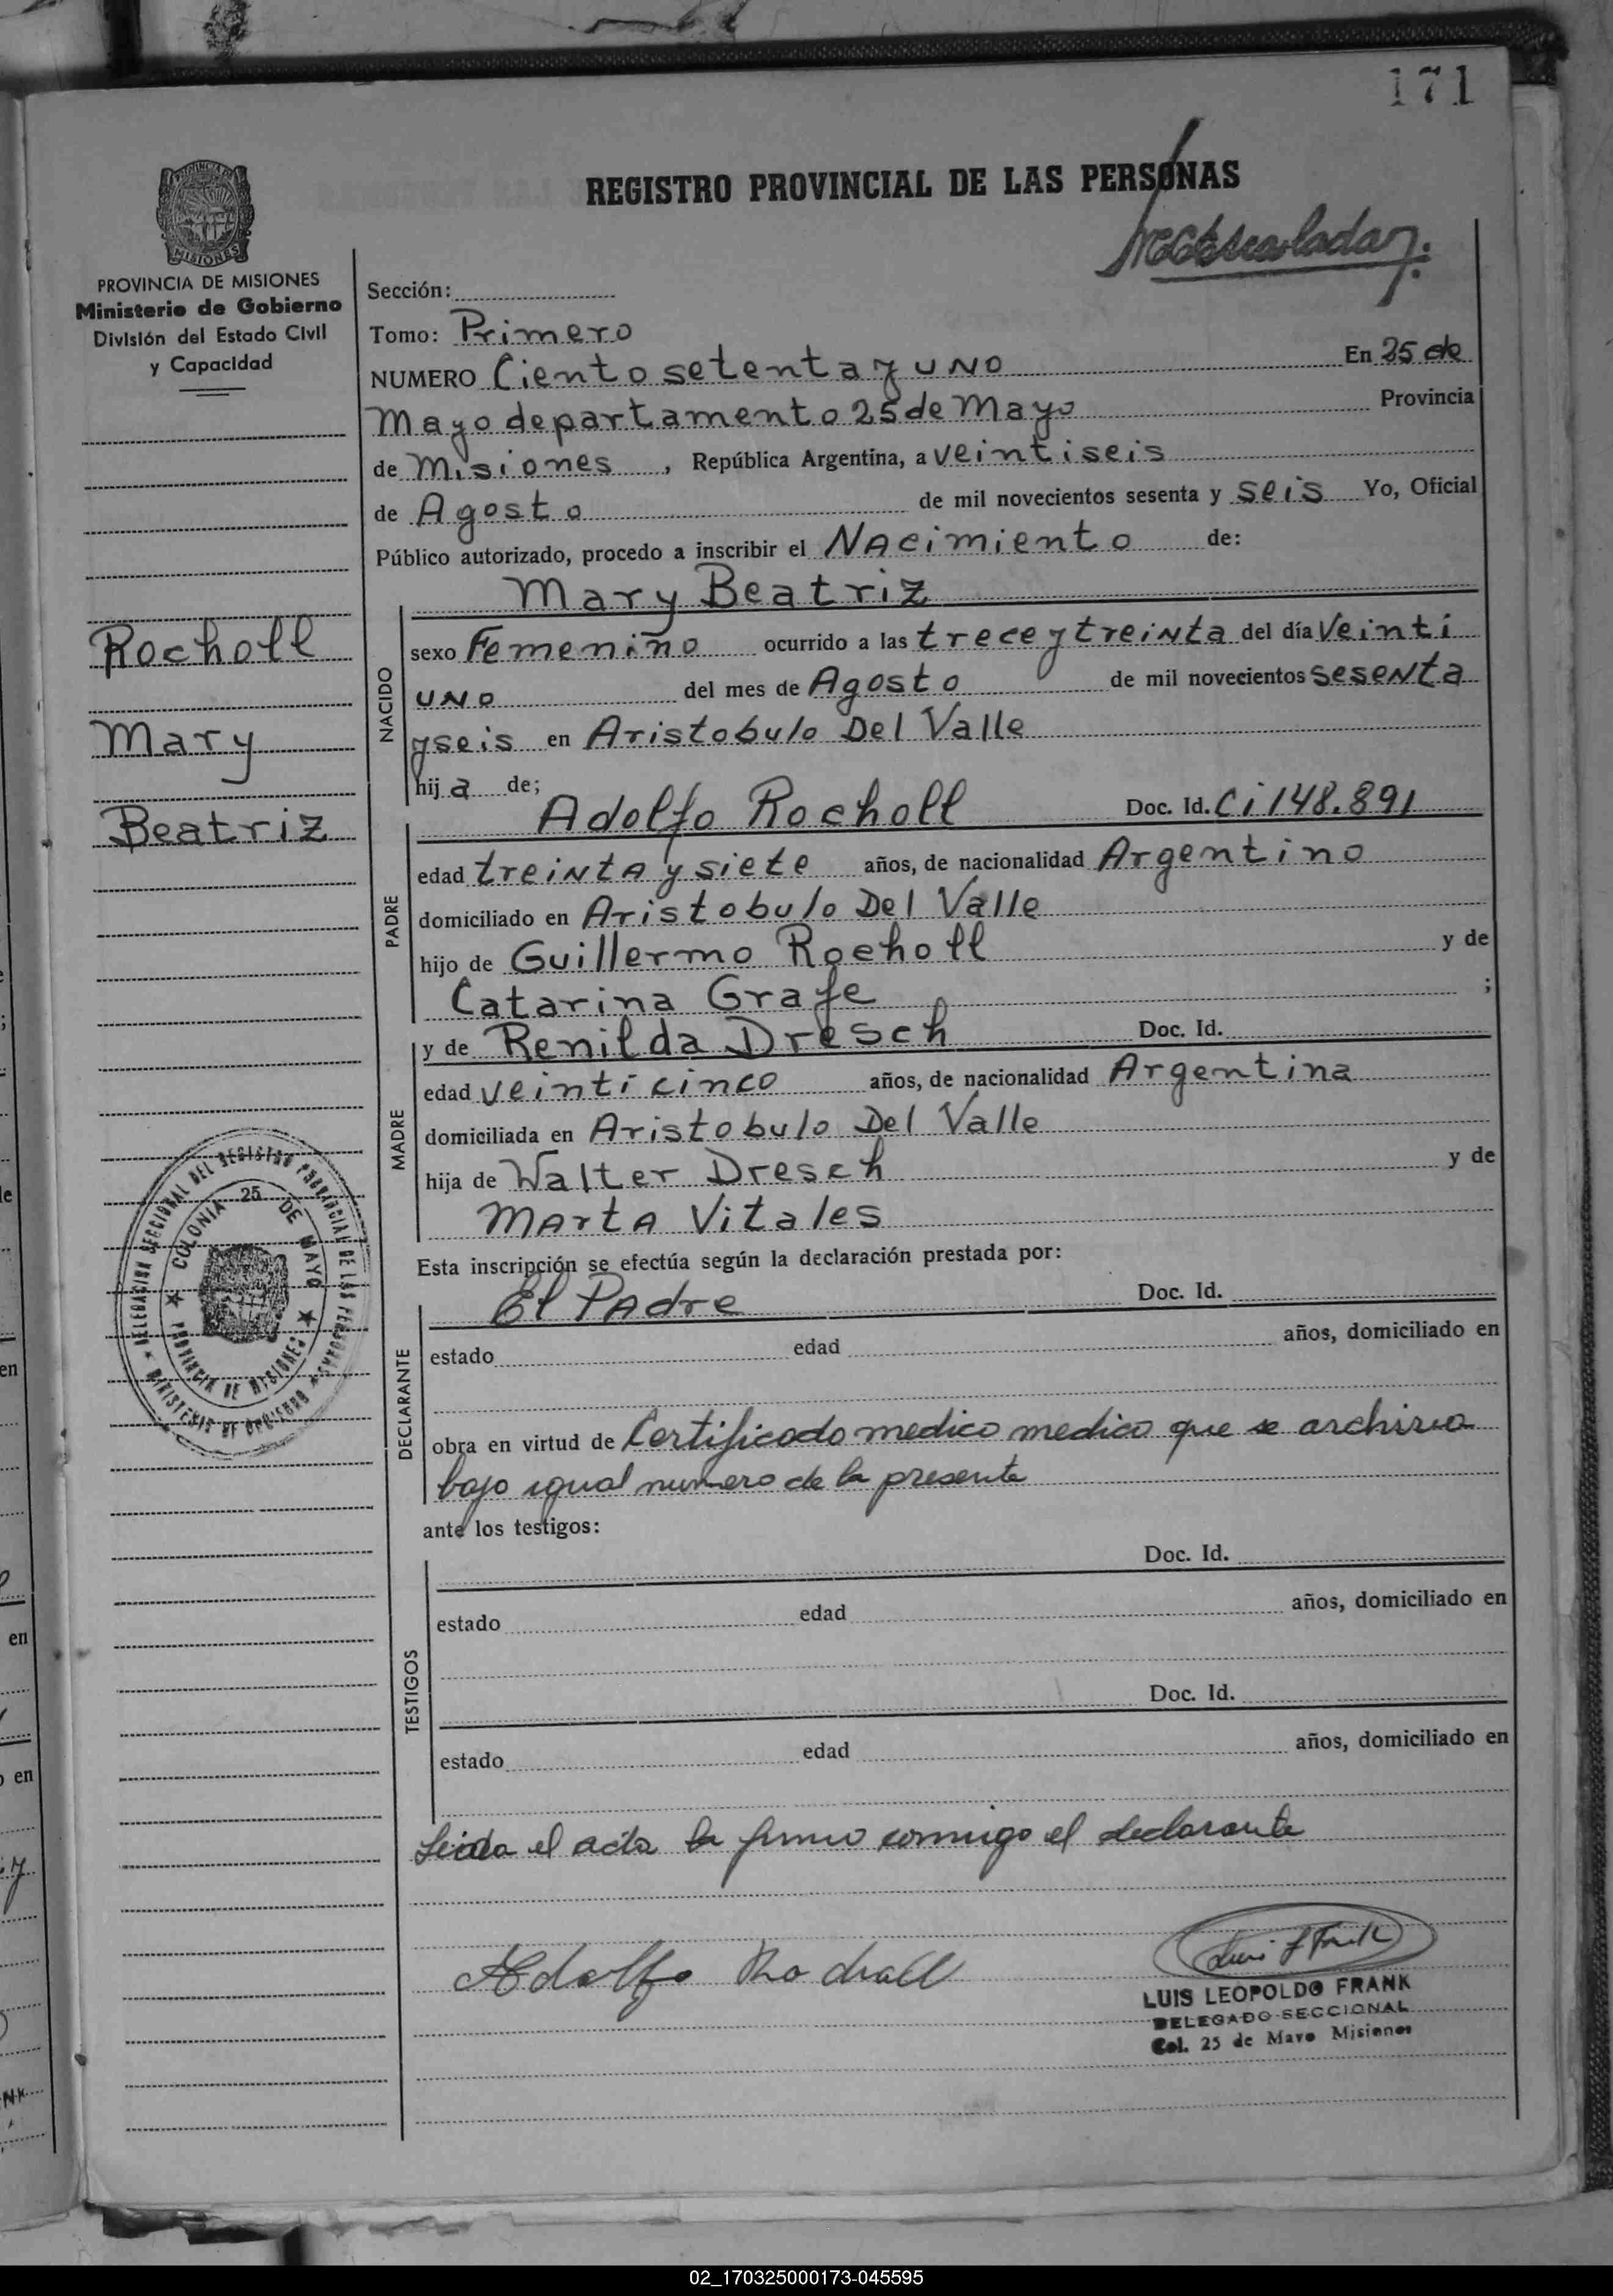 171
REGISTRO PROVINCIAL DE LAS PERSONAS
PROVINCIA DE MISIONES
Ministerio de Gobierno
División del Estado Civil
y Capacidad
Rocholl
Mary
Beatriz
DELEGACION SECCIONAL DEL REGISTRO PROVINCIAL DE LAS PERSONAS
MINISTERIO DE GOBIERNO
COLONIA 25 DE MAYO
PROVINCIA DE MISIONES
Sección:
Tomo: Primero
NUMERO Ciento setenta y uno En 25 de
Mayo departamento 25 de Mayo Provincia
de Misiones, República Argentina, a veintiseis
de Agosto de mil novecientos sesenta y seis Yo, Oficial
Público autorizado, procedo a inscribir el Nacimiento de:
Mary Beatriz
NACIDO
sexo Femenino ocurrido a las trece y treinta del día Veinti
uno del mes de Agosto de mil novecientos sesenta
y seis en Aristobulo Del Valle
hij a de;
Adolfo Rocholl Doc. Id. Ci 148.891
PADRE
edad treinta y siete años, de nacionalidad Argentino
domiciliado en Aristobulo Del Valle
hijo de Guillermo Rocholl y de
Catarina Grafe ;
y de Renilda Dresch Doc. Id.
MADRE
edad veinticinco años, de nacionalidad Argentina
domiciliada en Aristobulo Del Valle
hija de Walter Dresch y de
Marta Vitales
Esta inscripción se efectúa según la declaración prestada por:
El Padre Doc. Id.
DECLARANTE
estado edad años, domiciliado en
obra en virtud de Certificado medico medico que se archiva
bajo igual numero de la presente
ante los testigos:
Doc. Id.
TESTIGOS
estado edad años, domiciliado en
Doc. Id.
estado edad años, domiciliado en
Leida el acta la firma conmigo el declarante
Adolfo Rocholl
LUIS LEOPOLDO FRANK
DELEGADO SECCIONAL
Col. 25 de Mayo Misiones
02_170325000173-045595